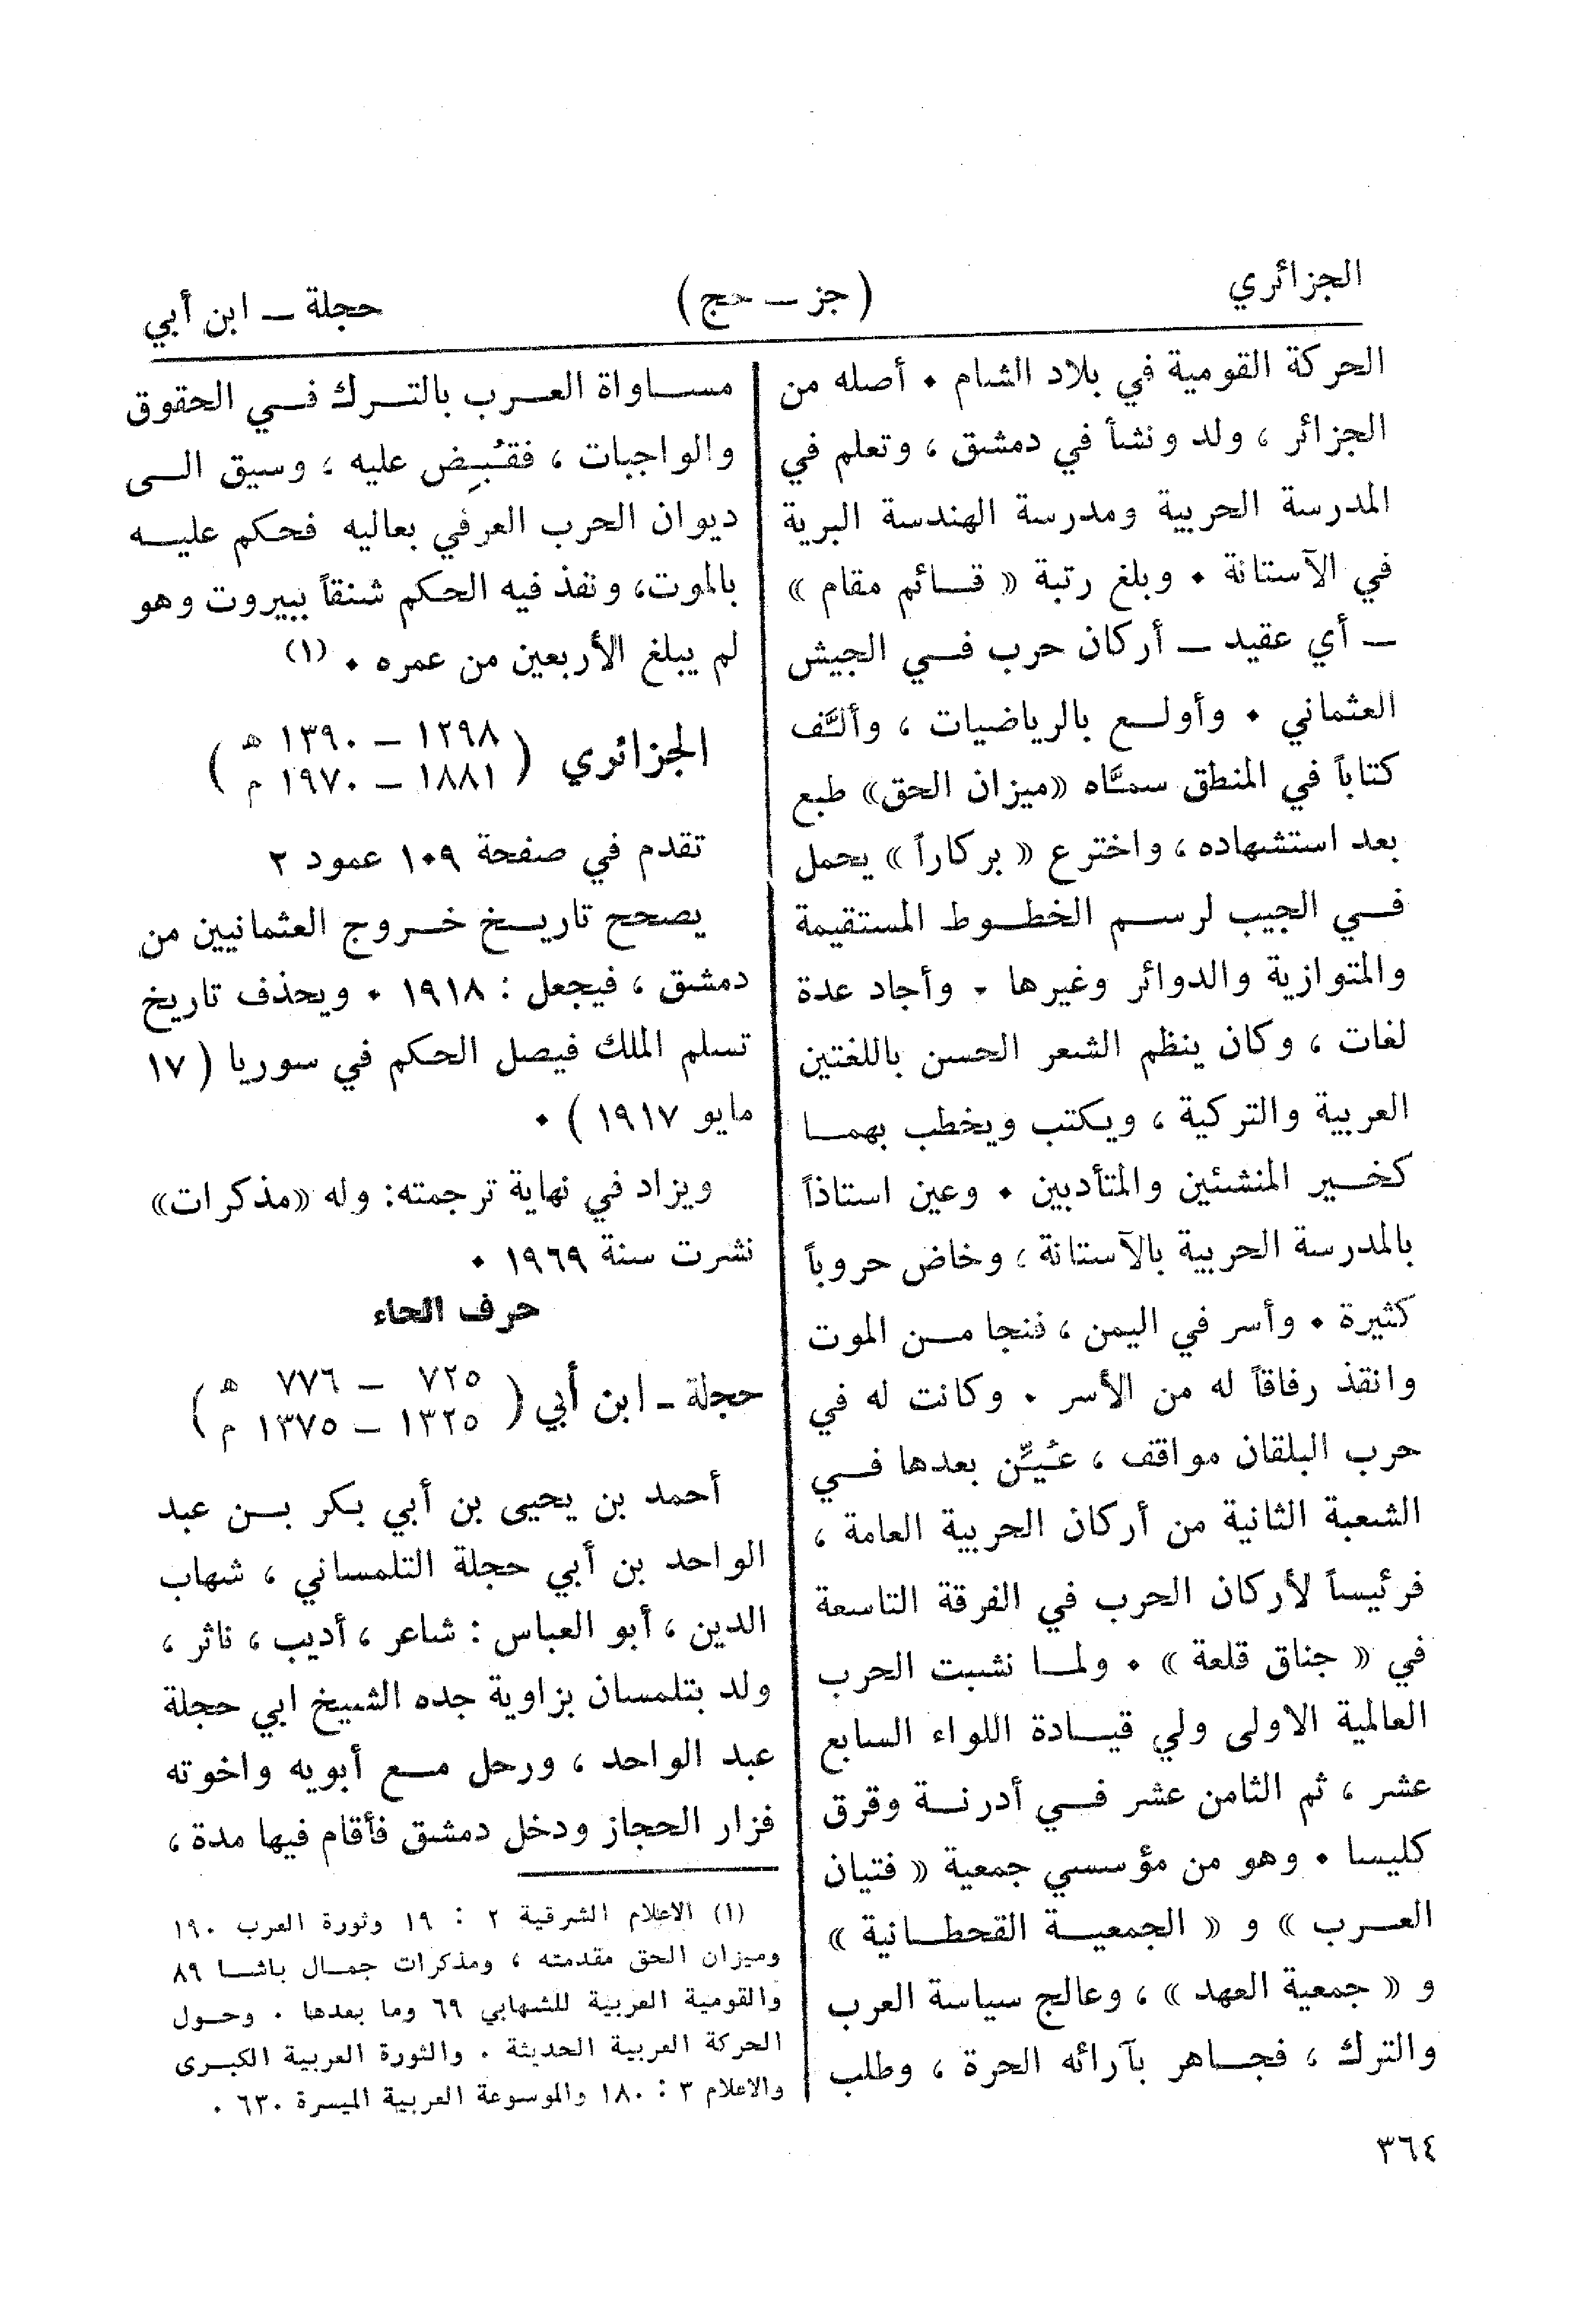 الجزائري
( جز ــ حج )
حجلة ــ ابن أبي
الحركة القومية في بلاد الشام . أصله من
الجزائر ، ولد ونشأ في دمشق ، وتعلم في
المدرسة الحربية ومدرسة الهندسة البرية
في الآستانة . وبلغ رتبة « قائم مقام »
ــ أي عقيد ــ أركان حرب في الجيش
العثماني . وأولع بالرياضيات ، وألَّف
كتاباً في المنطق سمَّاه «ميزان الحق» طبع
بعد استشهاده ، واخترع « بركاراً » يحمل
في الجيب لرسم الخطوط المستقيمة
والمتوازية والدوائر وغيرها . وأجاد عدة
لغات ، وكان ينظم الشعر الحسن باللغتين
العربية والتركية ، ويكتب ويخطب بهما
كخير المنشئين والمتأدبين . وعين استاذاً
بالمدرسة الحربية بالآستانة ، وخاض حروباً
كثيرة . وأسر في اليمن ، فنجا من الموت
وانقذ رفاقاً له من الأسر . وكانت له في
حرب البلقان مواقف ، عُيِّن بعدها في
الشعبة الثانية من أركان الحربية العامة ،
فرئيساً لأركان الحرب في الفرقة التاسعة
في « جناق قلعة » . ولما نشبت الحرب
العالمية الاولى ولي قيادة اللواء السابع
عشر ، ثم الثامن عشر في أدرنة وقرق
كليسا . وهو من مؤسسي جمعية « فتيان
العرب » و « الجمعية القحطانية »
و « جمعية العهد » ، وعالج سياسة العرب
والترك ، فجاهر بآرائه الحرة ، وطلب
مساواة العرب بالترك في الحقوق
والواجبات ، فقُبِض عليه ، وسيق الى
ديوان الحرب العرفي بعاليه فحكم عليه
بالموت، ونفذ فيه الحكم شنقاً ببيروت وهو
لم يبلغ الأربعين من عمره . (١)
الجزائري ( ١٢٩٨ ــ ١٣٩٠ هـ
١٨٨١ ــ ١٩٧٠ م )
تقدم في صفحة ١٠٩ عمود ٢
يصحح تاريخ خروج العثمانيين من
دمشق ، فيجعل : ١٩١٨ . ويحذف تاريخ
تسلم الملك فيصل الحكم في سوريا ( ١٧
مايو ١٩١٧ ) .
ويزاد في نهاية ترجمته: وله «مذكرات»
نشرت سنة ١٩٦٩ .
حرف الحاء
حجلة ــ ابن أبي ( ٧٢٥ ــ ٧٧٦ هـ
١٣٢٥ ــ ١٣٧٥ م )
أحمد بن يحيى بن أبي بكر بن عبد
الواحد بن أبي حجلة التلمساني ، شهاب
الدين ، أبو العباس : شاعر ، أديب ، ناثر ،
ولد بتلمسان بزاوية جده الشيخ ابي حجلة
عبد الواحد ، ورحل مع أبويه واخوته
فزار الحجاز ودخل دمشق فأقام فيها مدة ،
(١) الاعلام الشرقية ٢ : ١٩ وثورة العرب ١٩٠
وميزان الحق مقدمته ، ومذكرات جمال باشا ٨٩
والقومية العربية للشهابي ٦٩ وما بعدها . وحول
الحركة العربية الحديثة . والثورة العربية الكبرى
والاعلام ٣ : ١٨٠ والموسوعة العربية الميسرة ٦٣٠ .
٣٦٤